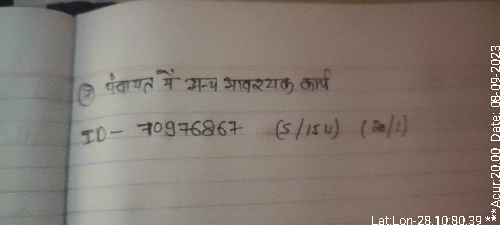 ③ पंचायत में अन्य आवश्यक कार्य
ID - 70976867 (5/154) (20/1)
Lat:Lon-28.10:80.39 *** Acur:20.00 Date: 08-09-2023